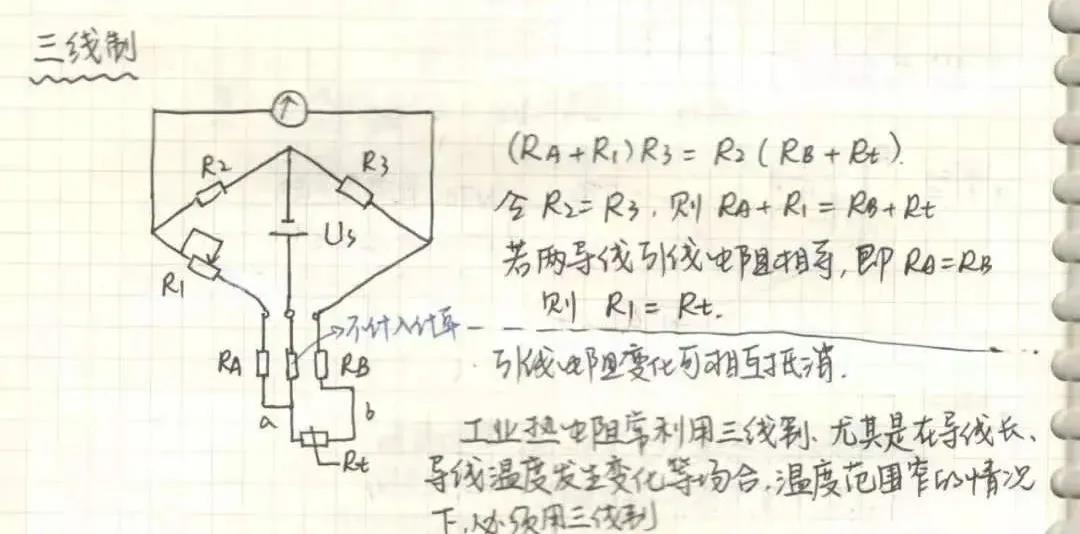 三线制
R2
R3
Us
R1
RA
RB
a
b
Rt
不计入计算
(RA+R1)R3=R2(RB+Rt).
令R2=R3,则RA+R1=RB+Rt
若两导线引线电阻相等,即RA=RB
则 R1=Rt.
引线电阻变化可相互抵消.
工业热电阻常利用三线制、尤其是在导线长、
导线温度发生变化等场合,温度范围窄的情况
下,必须用三线制